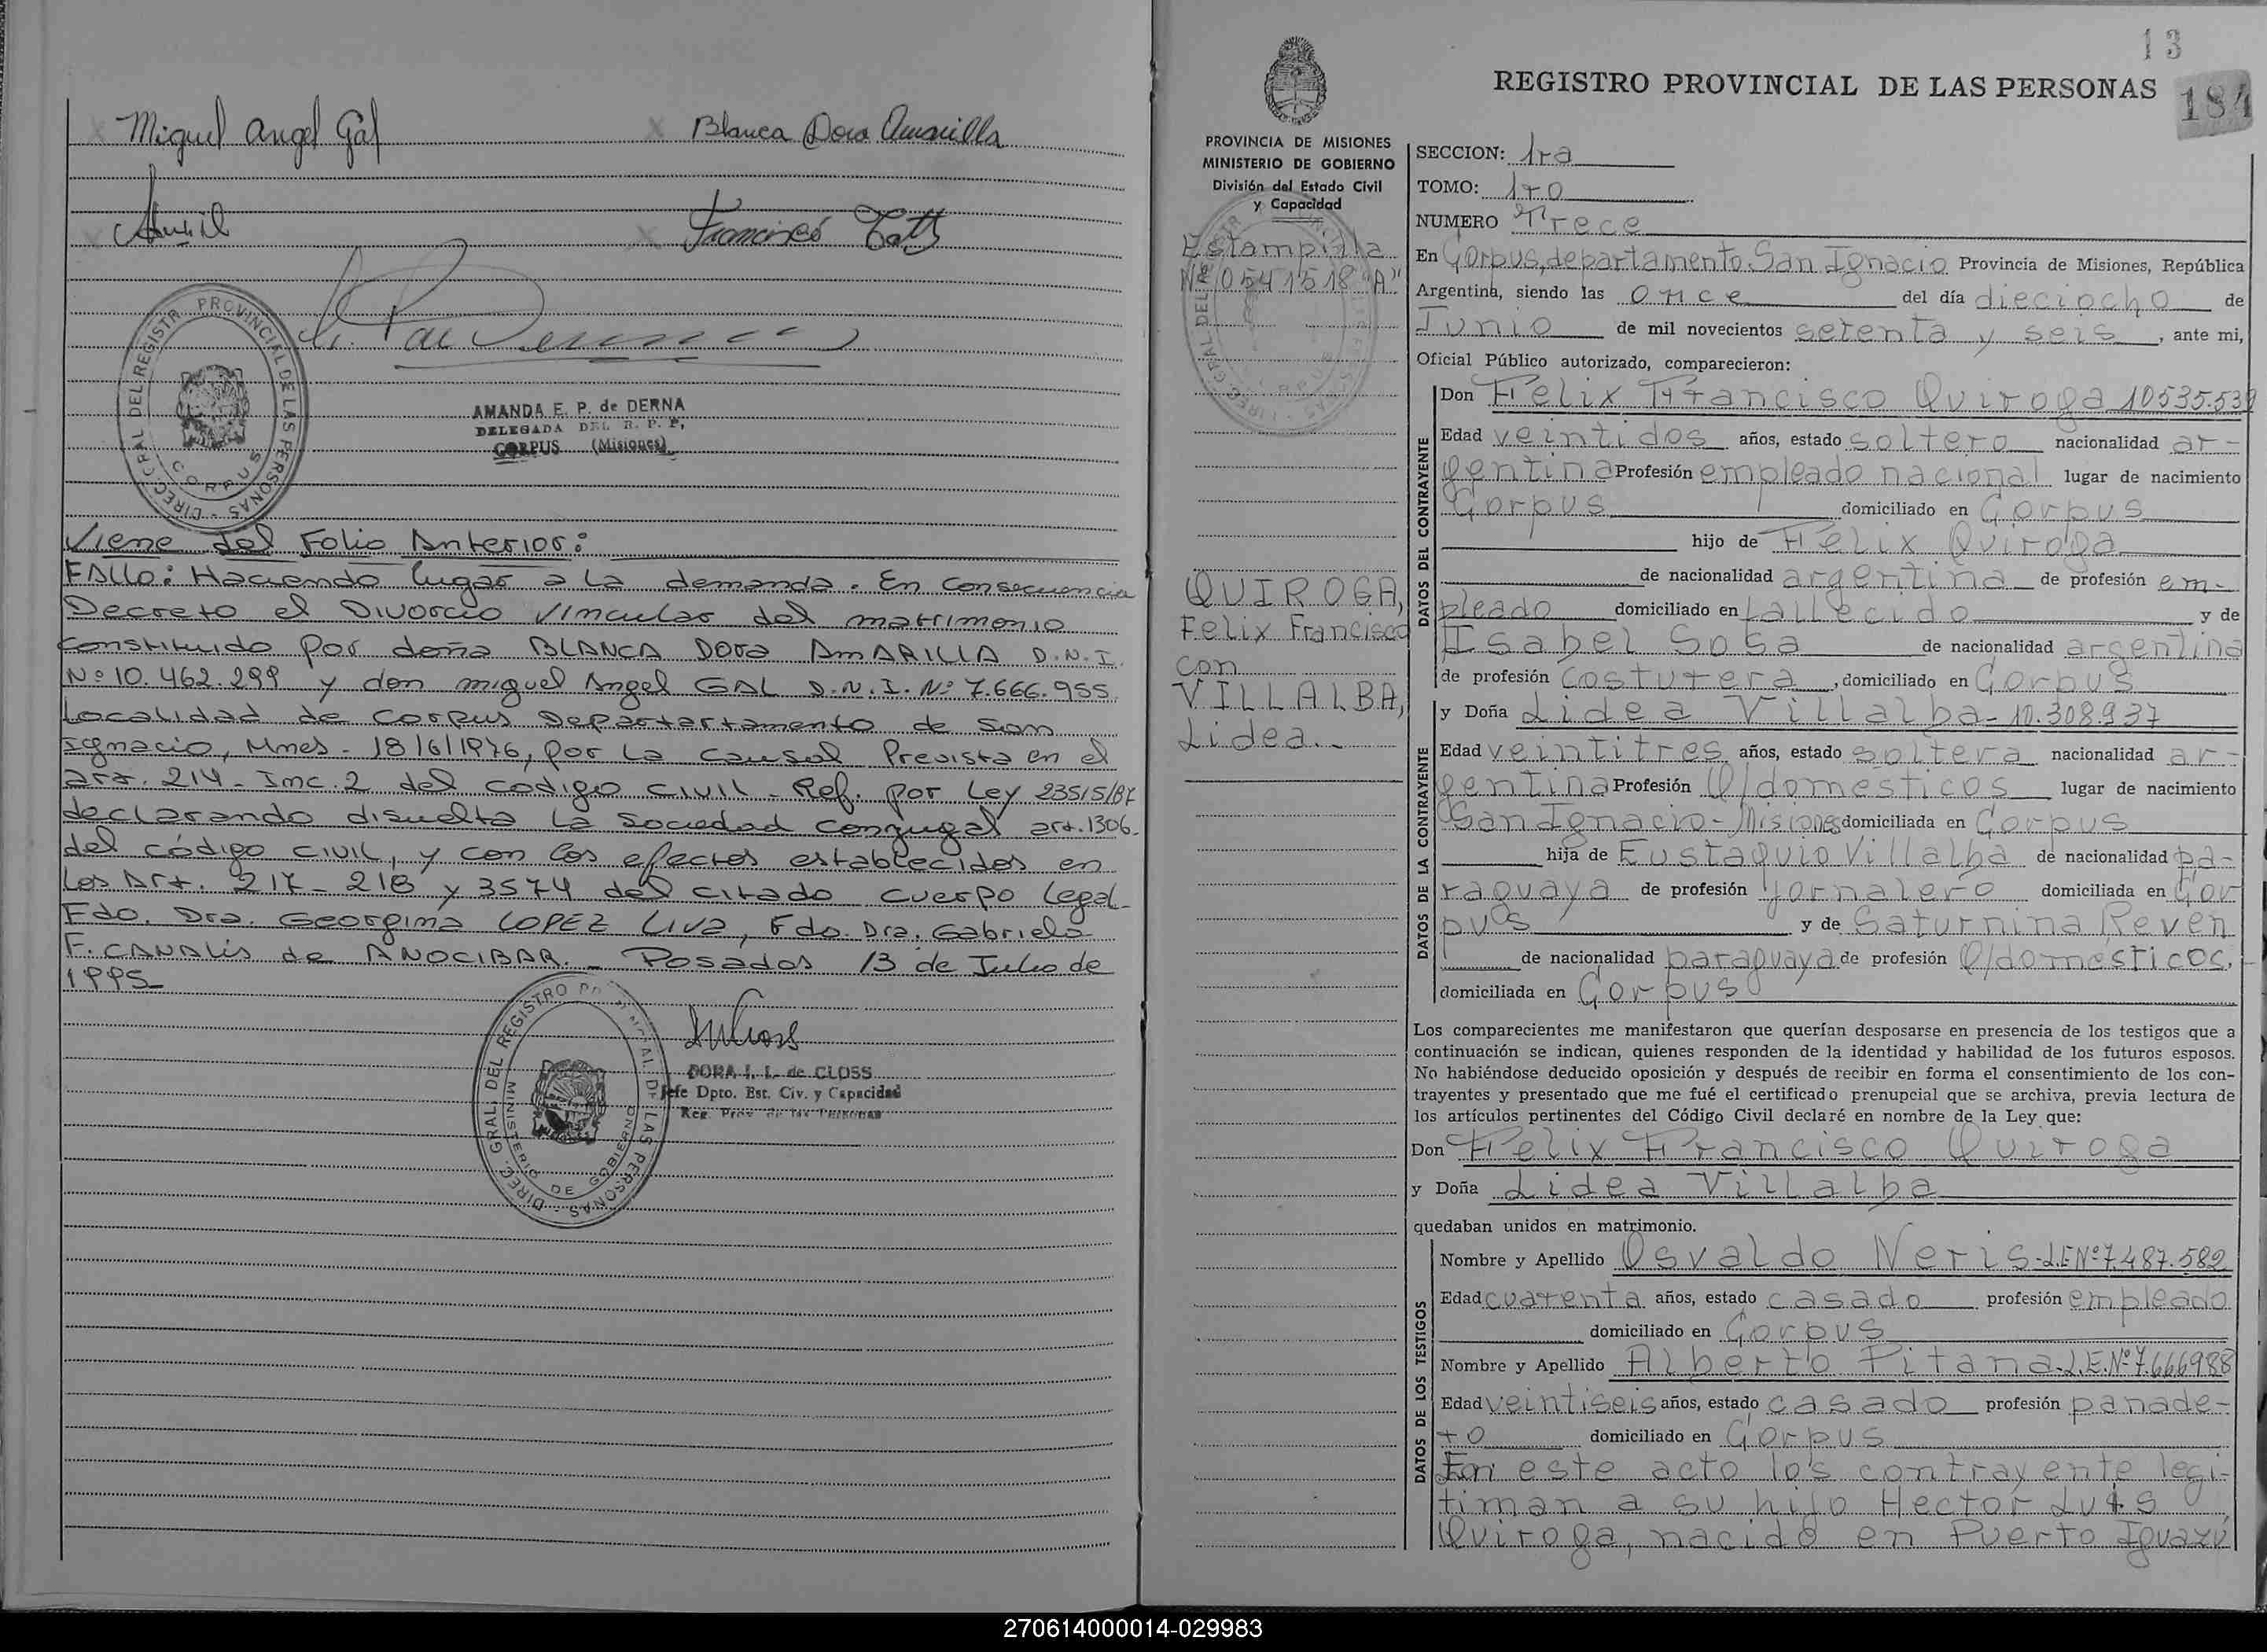 Miguel Angel Gal
Blanca Dora Amarilla
Francisco
PROVINCIAL DE LAS PERSONAS
CORPUS
AMANDA E. P. de DERNA
DELEGADA DEL R. P. P,
CORPUS (Misiones)
Viene del Folio Anterior:
FALLO: Haciendo lugar a la demanda. En consecuencia
Decreto el Divorcio Vincular del matrimonio
constituido por doña BLANCA DORA AMARILLA D.N.I.
Nº 10.462.299 y don miguel Angel GAL D.N.I. Nº 7.666.955
Localidad de Corpus Departartamento de San
Ignacio, Mnes - 18/6/1976, por la causal Prevista en el
art. 214 - Inc. 2 del codigo civil - Ref. por Ley 23515/87
declarando disuelta la sociedad conyugal art. 1306
del código civil, y con los efectos establecidos en
Los Art. 217 - 218 y 3574 del citado cuerpo legal-
Fdo. Dra. Georgina LOPEZ Liva, Fdo. Dra. Gabriela
F. CANALis de ANOCIBAR. - Posadas 13 de Julio de
1995
MINISTERIO DE GOBIERNO
DORA I. L. de CLOSS
Jefe Dpto. Est. Civ. y Capacidad
Reg. Prov. de las Personas
13
REGISTRO PROVINCIAL DE LAS PERSONAS
184
PROVINCIA DE MISIONES
MINISTERIO DE GOBIERNO
División del Estado Civil
y Capacidad
Estampilla
Nº 0541518 "A"
QUIROGA,
Felix Francisco
con
VILLALBA,
Lidea.-
SECCION: 1ra
TOMO: 1ro
NUMERO Trece
En Corpus, departamento San Ignacio Provincia de Misiones, República
Argentina, siendo las once del día dieciocho de
Junio de mil novecientos setenta y seis, ante mi,
Oficial Público autorizado, comparecieron:
DATOS DEL CONTRAYENTE
Don Felix Francisco Quiroga 10535.539
Edad veintidos años, estado soltero nacionalidad ar-
gentina Profesión empleado nacional lugar de nacimiento
Corpus domiciliado en Corpus
hijo de Felix Quiroga
de nacionalidad argentina de profesión em-
pleado domiciliado en fallecido y de
Isabel Sosa de nacionalidad argentina
de profesión costurera, domiciliado en Corpus
DATOS DE LA CONTRAYENTE
y Doña Lidea Villalba - 10.308.937
Edad veintitres años, estado soltera nacionalidad ar-
gentina Profesión Q/domesticos lugar de nacimiento
San Ignacio - Misiones domiciliada en Corpus
hija de Eustaquio Villalba de nacionalidad pa-
raguaya de profesión jornalero domiciliada en Cor
pus y de Saturnina Reven
de nacionalidad paraguaya de profesión Q/domésticos,
domiciliada en Corpus
Los comparecientes me manifestaron que querían desposarse en presencia de los testigos que a
continuación se indican, quienes responden de la identidad y habilidad de los futuros esposos.
No habiéndose deducido oposición y después de recibir en forma el consentimiento de los con-
trayentes y presentado que me fué el certificado prenupcial que se archiva, previa lectura de
los artículos pertinentes del Código Civil declaré en nombre de la Ley que:
Don Felix Francisco Quiroga
y Doña Lidea Villalba
quedaban unidos en matrimonio.
DATOS DE LOS TESTIGOS
Nombre y Apellido Osvaldo Neris - L.E Nº 7.487.582
Edad cuarenta años, estado casado profesión empleado
domiciliado en Corpus
Nombre y Apellido Alberto Pitana - L.E. Nº 7.666988
Edad veintiseis años, estado casado profesión panade-
ro domiciliado en Corpus
En este acto los contrayente legi-
timan a su hijo Hector Luis
Quiroga, nacido en Puerto Iguazú
270614000014-029983